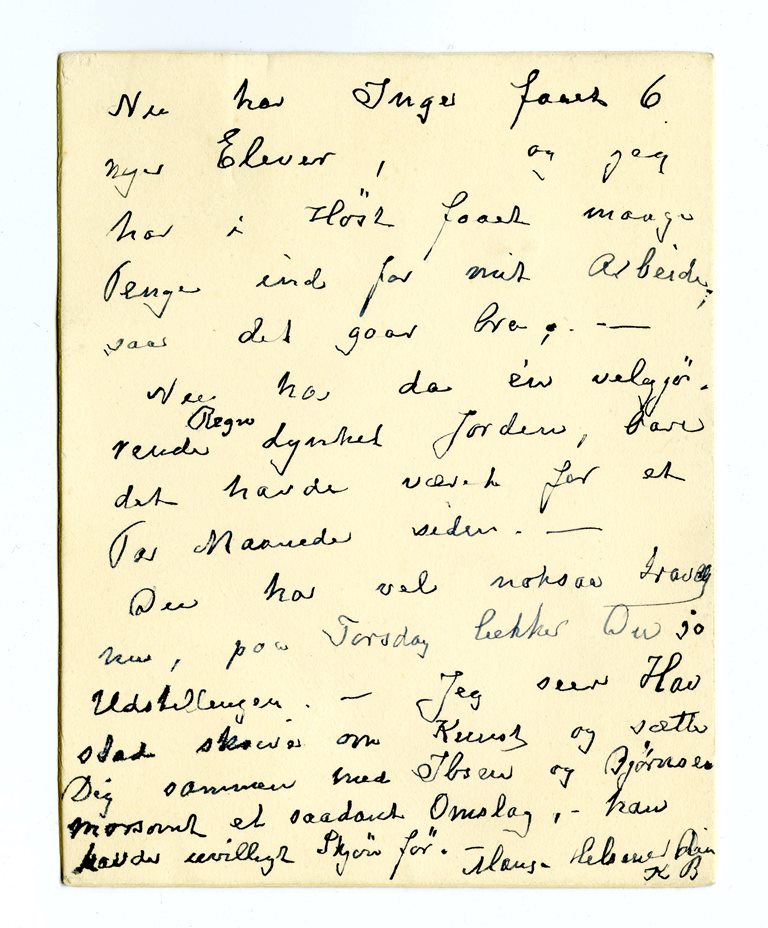 Nu har Inger faaet 6
nye Elever, og jeg
har i Höst faaet mange
Penge ind for mit Arbeide,
saa det gaar bra, . —
Nu har da én velgjö-
rende Regn dynket Jorden, bare
det havde været for et
Par Maaneder siden. —
Du har vel noksaa travelt
nu, paa Torsdag hækker Du jo
Udstillingen. — Jeg seer Hav
stad skriver om Kunst og sætter
Dig sammen med Ibsen og Bjørnsen
morsomt et saadant Omslag, - han
havde uvilligt Skjön för. Mange Helsener Din
K B